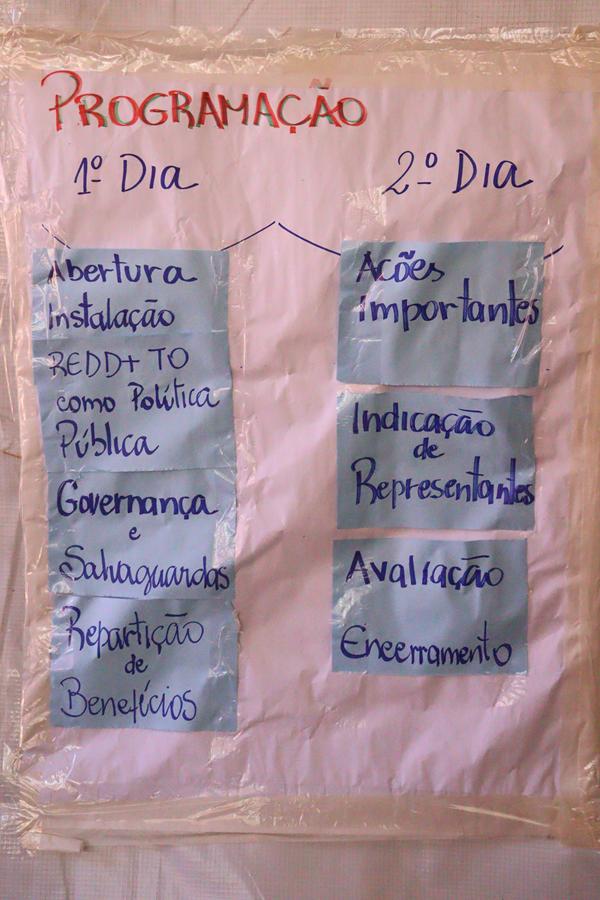 PROGRAMAÇÃO
1º DIA
Abertura
Instalação
REDD+ TO
como Política
Pública
Governança
e
Salvaguardas
Repartição
de
Benefícios
2º DIA
Ações
Importantes
Indicação
de
Representantes
Avaliação
Encerramento